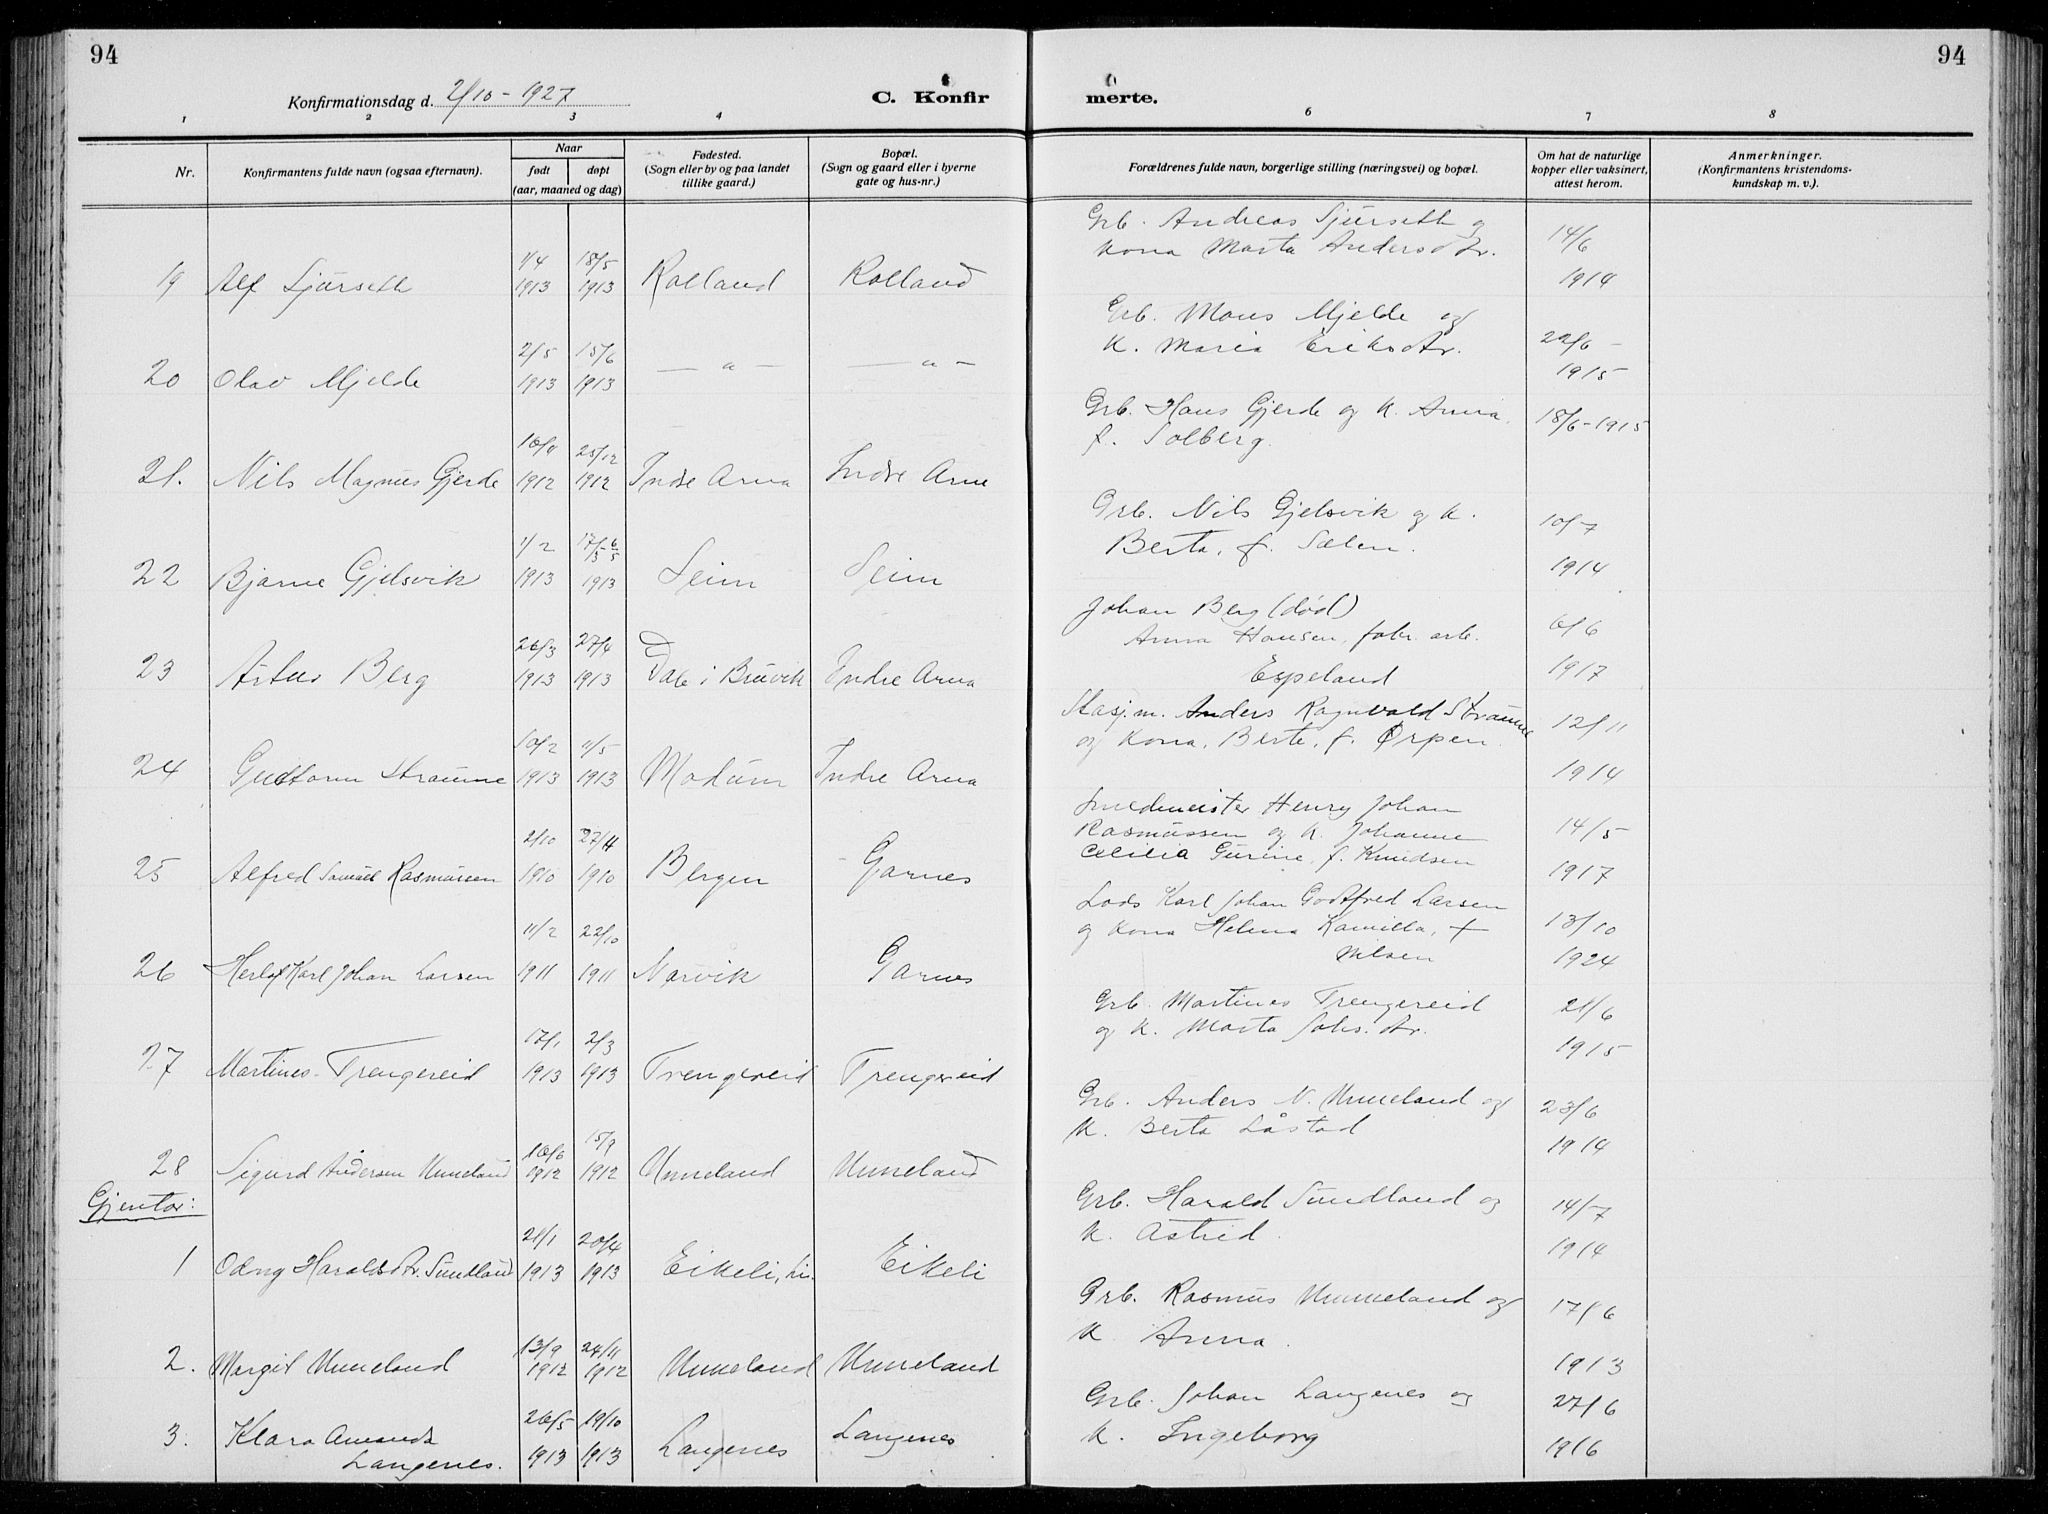 94
94
Konfirmationsdag d. 2/10 - 1927
C. Konfir merte.
1 2 3 4 6 7 8
Nr.
Konfirmantens fulde navn (ogsaa efternavn).
Naar
født døpt
(aar, maaned og dag)
Fødested.
(Sogn eller by og paa landet
tillike gaard.)
Bopæl.
(Sogn og gaard eller i byerne
gate og hus-nr.)
Forældrenes fulde navn, borgerlige stilling (næringsvei) og bopæl.
Om hat de naturlige
kopper eller vaksinert,
attest herom.
Anmerkninger.
(Konfirmantens kristendoms-
kundskap m. v.).
Grb. Andreas Sjurseth og
kona Marta Andersdtr.
14/6
1914
1/4 18/5
19 Alf Sjurseth 1913 1913 Rolland Rolland
Grb. Mons Mjelde og
k. Maria Eriksdtr.
22/6 -
1915
2/5 15/6
20 Olav Mjelde 1913 1913 — " — — " —
Grb. Hans Gjerde og k. Anna
f. Solberg.
18/6-1915
25/12
21. Nils Magnus Gjerde 1912 1912 Indre Arna Indre Arne
Grb. Nils Gjelsvik og k.
Berta, f. Sælen.
10/7
1914
1/2 17/5
22 Bjarne Gjelsvik 1913 1913 Seim Seim
Johan Berg (død)
Anna Hansen, fabr. arb.
Espeland
6/6
1917
26/3 27/4
23 Artur Berg 1913 1913 Dale i Bruvik Indre Arna
Stasj.m. Anders Ragnvald Straume
og kona, Berte, f. Ørpen.
12/11
1914
10/2 11/5
24 Guttorm Straume 1913 1913 Modum Indre Arna
Smedmeister Henry Johan
Rasmussen og k. Johanne
Cecilia Gurine, f. Knudsen
14/5
1917
2/10 27/11
25 Alfred Samuel Rasmussen 1910 1910 Bergen Garnes
Lods Karl Johan Godtfred Larsen
og kona Helena Kamilla, f
Nilsen
13/10
1924
11/2 22/10
26 Herlof Karl Johan Larsen 1911 1911 Narvik Garnes
Grb. Martines Trengereid
og k. Marta Johs. dtr.
21/6
1915
17/1 2/3
27 Martines Trengereid 1913 1913 Trengereid Trengereid
Grb. Anders N. Unneland og
k. Berta Låstad
23/6
1914
15/9
28 Sigurd Andersen Unneland 1912 1912 Unneland Unneland
Gjentor:
Grb. Harald Sundland og
k. Astrid.
14/7
1914
21/1 20/4
1 Odny Haraldsdtr. Sundland 1913 1913 Eikeli, Eikeli
Grb. Rasmus Unneland og
k. Anna.
17/6
1913
13/9 24/11
2. Margit Unneland 1912 1912 Unneland Unneland
Grb. Johan Langenes og
k. Ingeborg
27/6
1916
26/5 19/10
3. Klara Amanda
Langenes. 1913 1913 Langenes Langenes